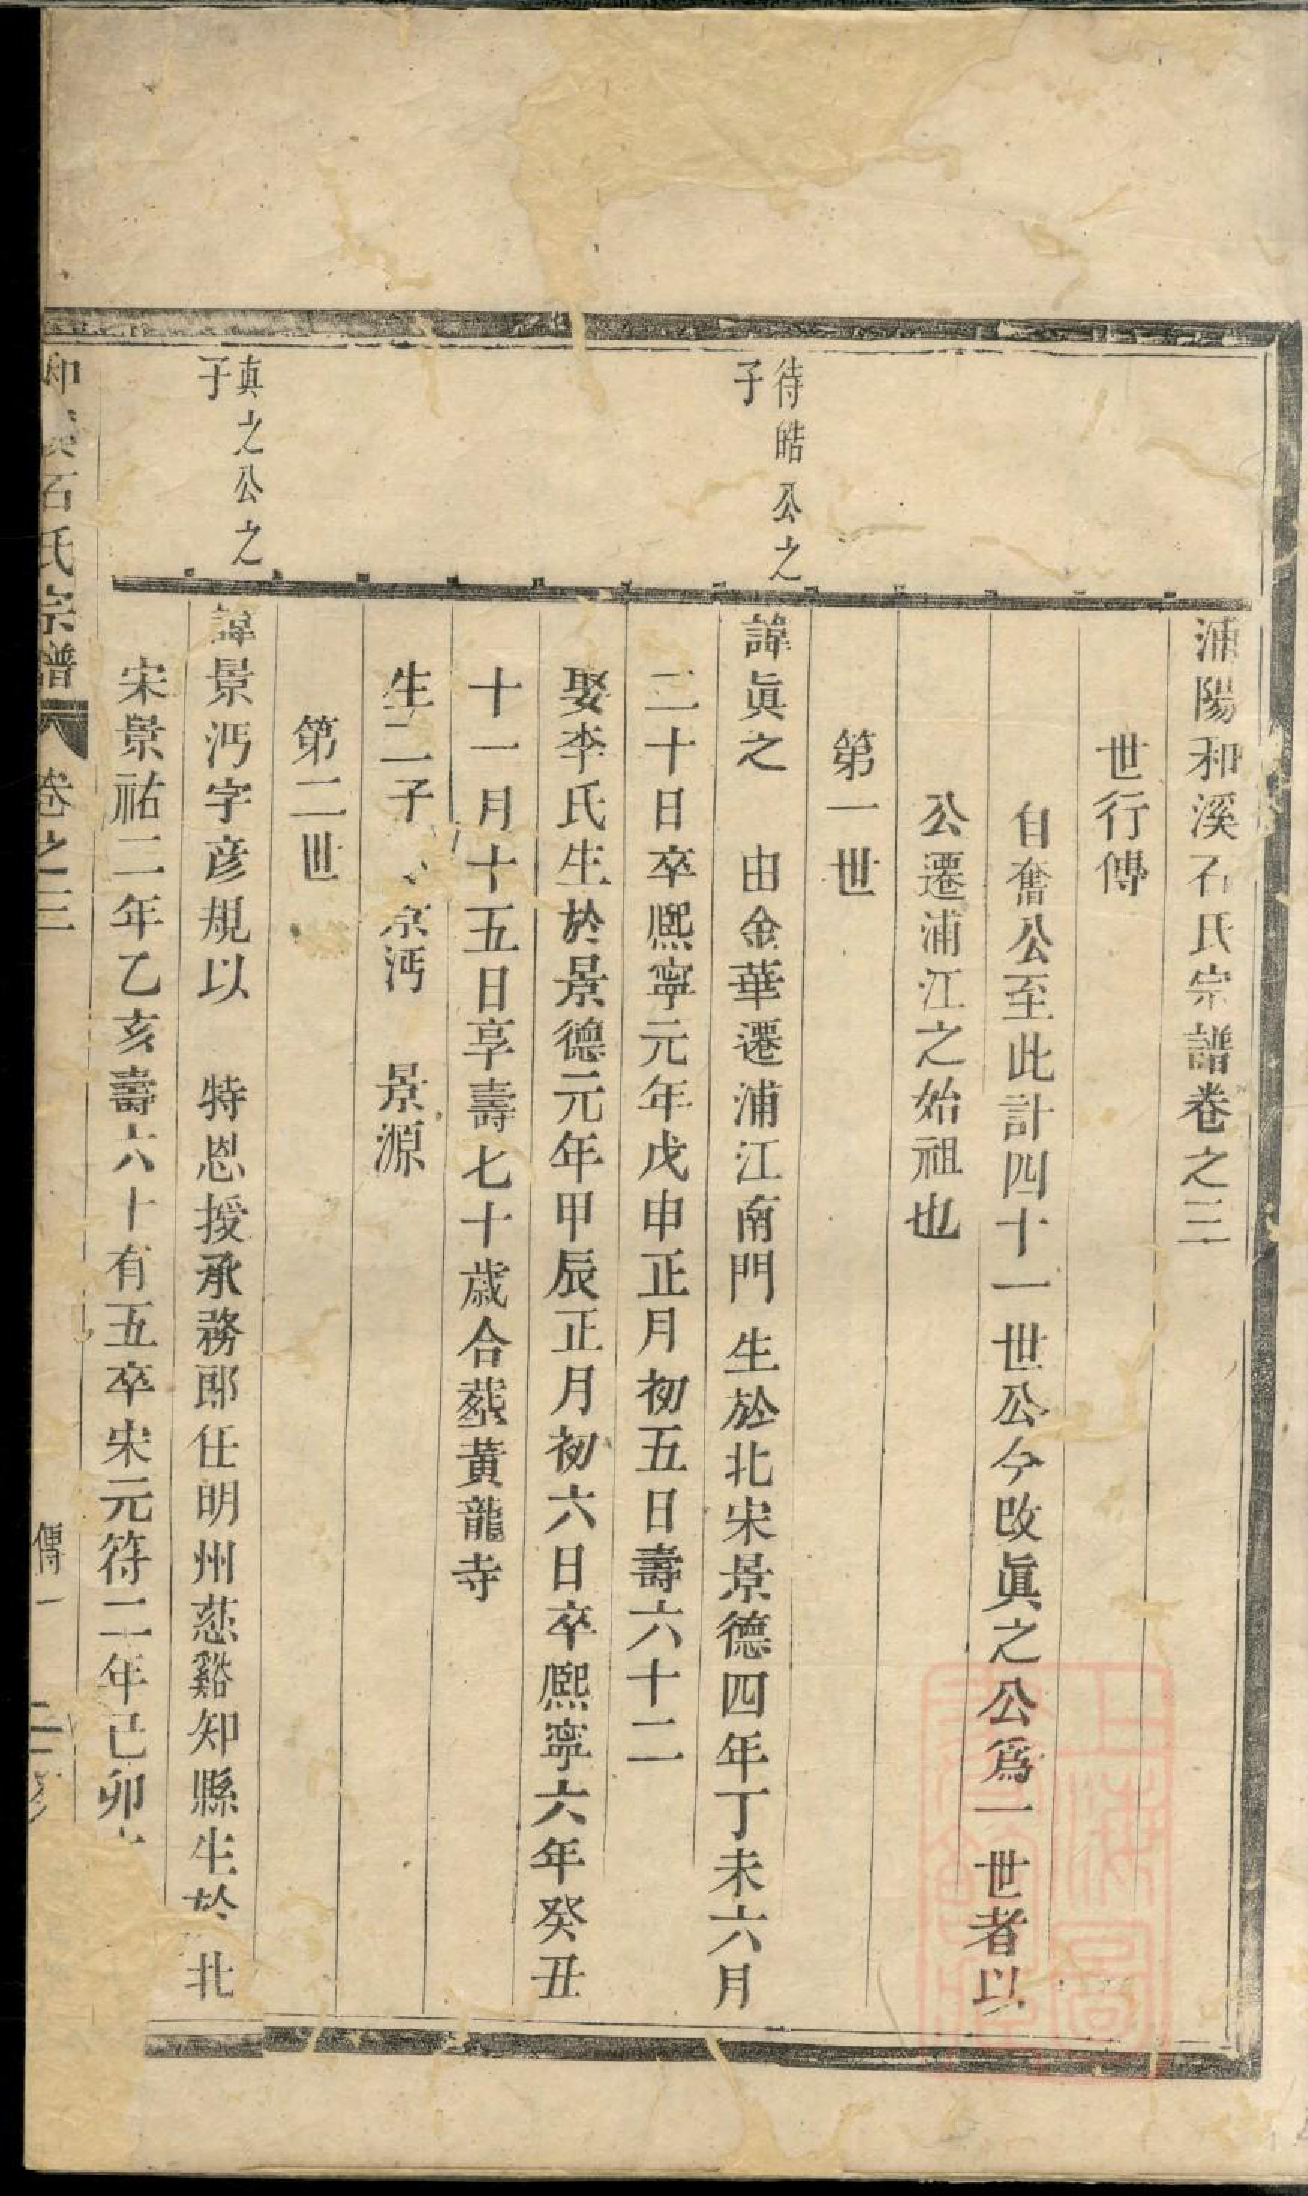 浦陽和溪石氏宗譜卷之三
世行傳
自奮公至此計四十一世公今改眞之公爲一世者以
公遷浦江之始祖也
第一世
待皓公之
子
諱眞之　由金華遷浦江南門　生於北宋景德四年丁未六月
二十日卒熈寧元年戊申正月初五日壽六十二
娶李氏生於景德元年甲辰正月初六日卒熈寧六年癸丑
十一月十五日享壽七十歲合葬黃龍寺
生二子　景沔　景源
第二世
真之公之
子
諱景沔字彦規以　特恩授承務郎任明州慈谿知縣生於北
宋景祐二年乙亥壽六十有五卒宋元符二年己卯
和溪石氏宗譜　卷之三　傳一